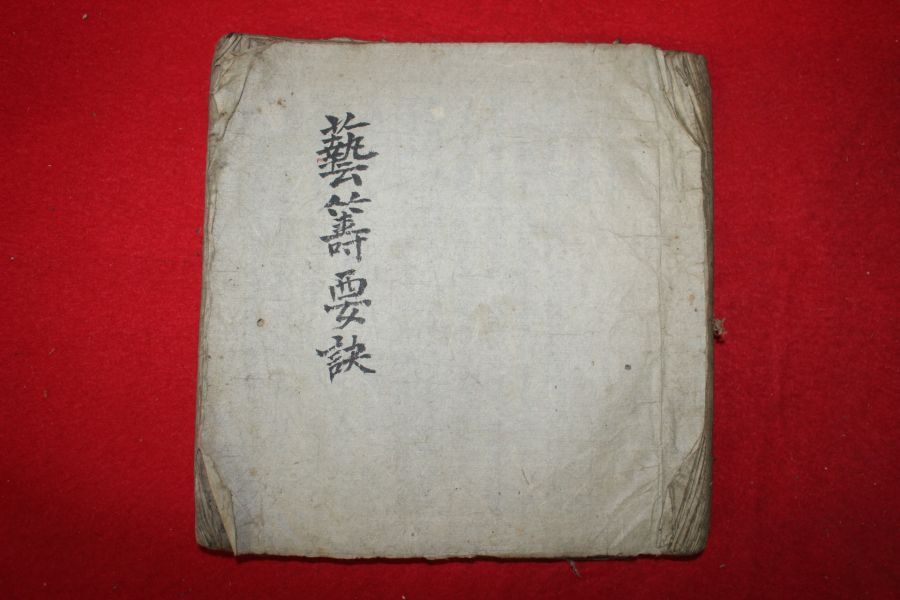 藝籌要訣